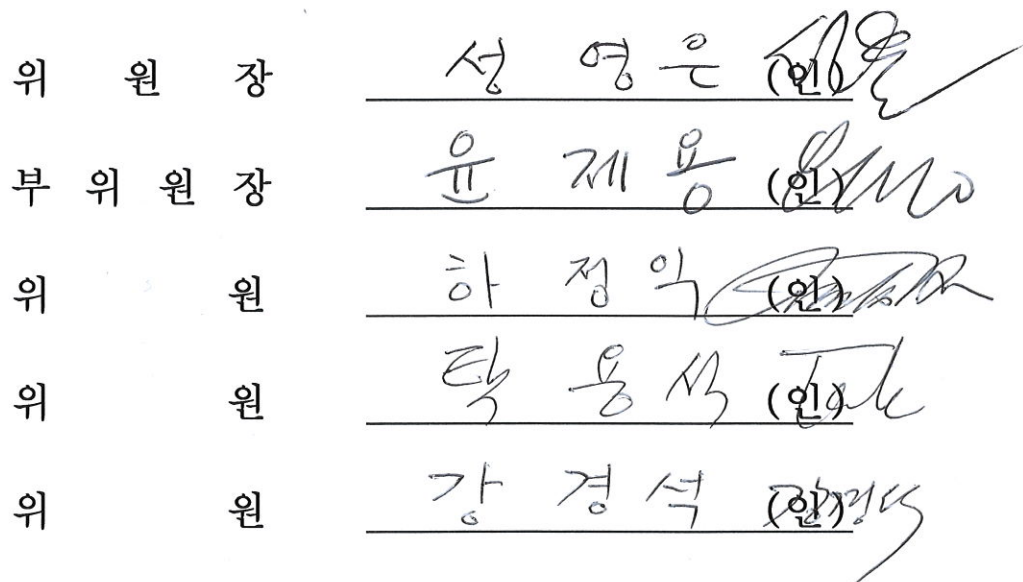 위 원 장 성 영 은 (인)
부 위 원 장 윤 제 용 (인)
위 원 하 정 익 (인)
위 원 탁 용 석 (인)
위 원 강 경 석 (인)